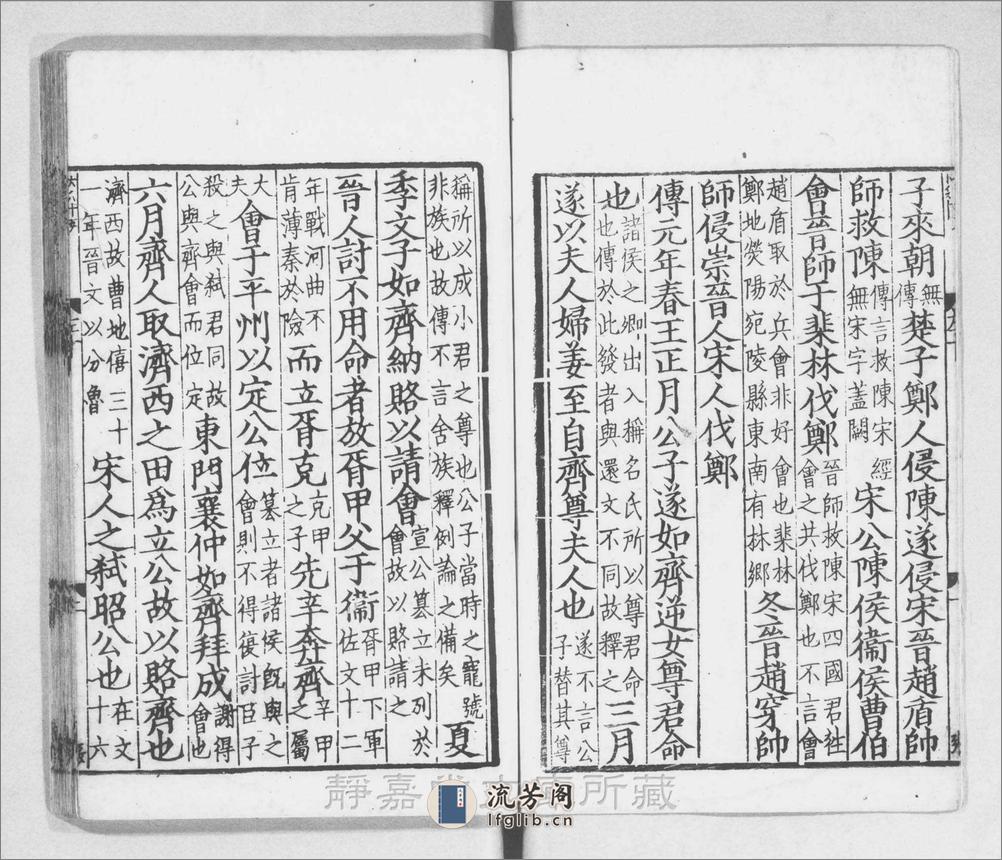 子來朝無傳楚子鄭人侵陳遂侵宋晉趙盾帥
師救陳傳言救陳宋經無宋字蓋闕宋公陳侯衞侯曹伯
會晉師于棐林伐鄭晉師救陳宋四國君往會之共伐鄭也不言會
趙盾取於兵會非好會也棐林鄭地熒陽宛陵縣東南有林鄉冬晉趙穿帥
師侵崇晉人宋人伐鄭
傳元年春王正月公子遂如齊逆女尊君命
也諸侯之卿出入稱名氏所以尊君命也傳於此發者與還文不同故釋之三月
遂以夫人婦姜至自齊尊夫人也遂不言公子替其尊
稱所以成小君之尊也公子當時之寵號非族也故傳不言舍族釋例論之備矣夏
季文子如齊納賂以請會宣公篡立未列於會故以賂請之
晉人討不用命者放胥甲父于衞胥甲下軍佐文十二
年戰河曲不肯薄秦於險而立胥克克甲之子先辛奔齊辛甲之屬
大夫會于平州以定公位篡立者諸侯旣與之會則不得復討臣子
殺之與弒君同故公與齊會而位定東門襄仲如齊拜成謝得會也
六月齊人取濟西之田爲立公故以賂齊也
濟西故曹地僖三十一年晉文以分魯宋人之弒昭公也在文十六
靜嘉堂文庫所藏
流芳阁
lfglib.cn